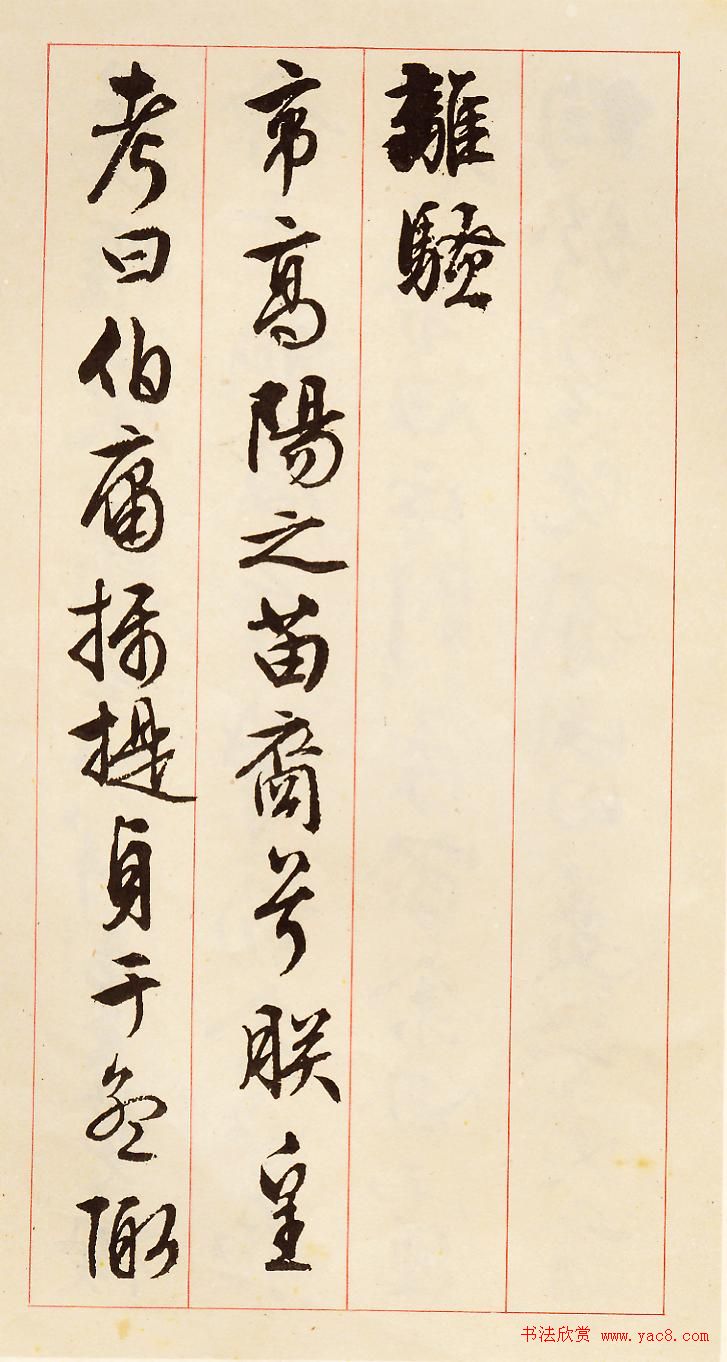 離騷
帝高陽之苗裔兮朕皇
考曰伯庸攝提貞于孟陬
书法欣赏 www.yac8.com